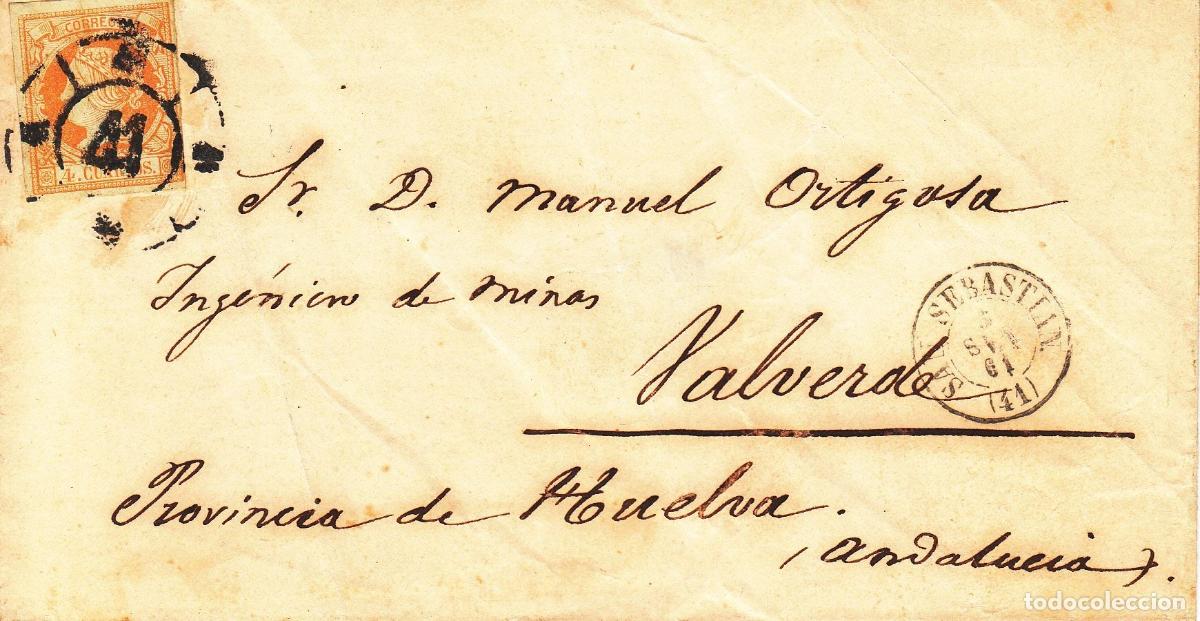 CORREOS
41
4. CUARTOS.
Sr. D. Manuel Ortigosa
Ingéniero de minas
Valverde
SAN SEBASTIAN.
61
(41)
Provincia de Huelva.
(Andalucia).
todocoleccion